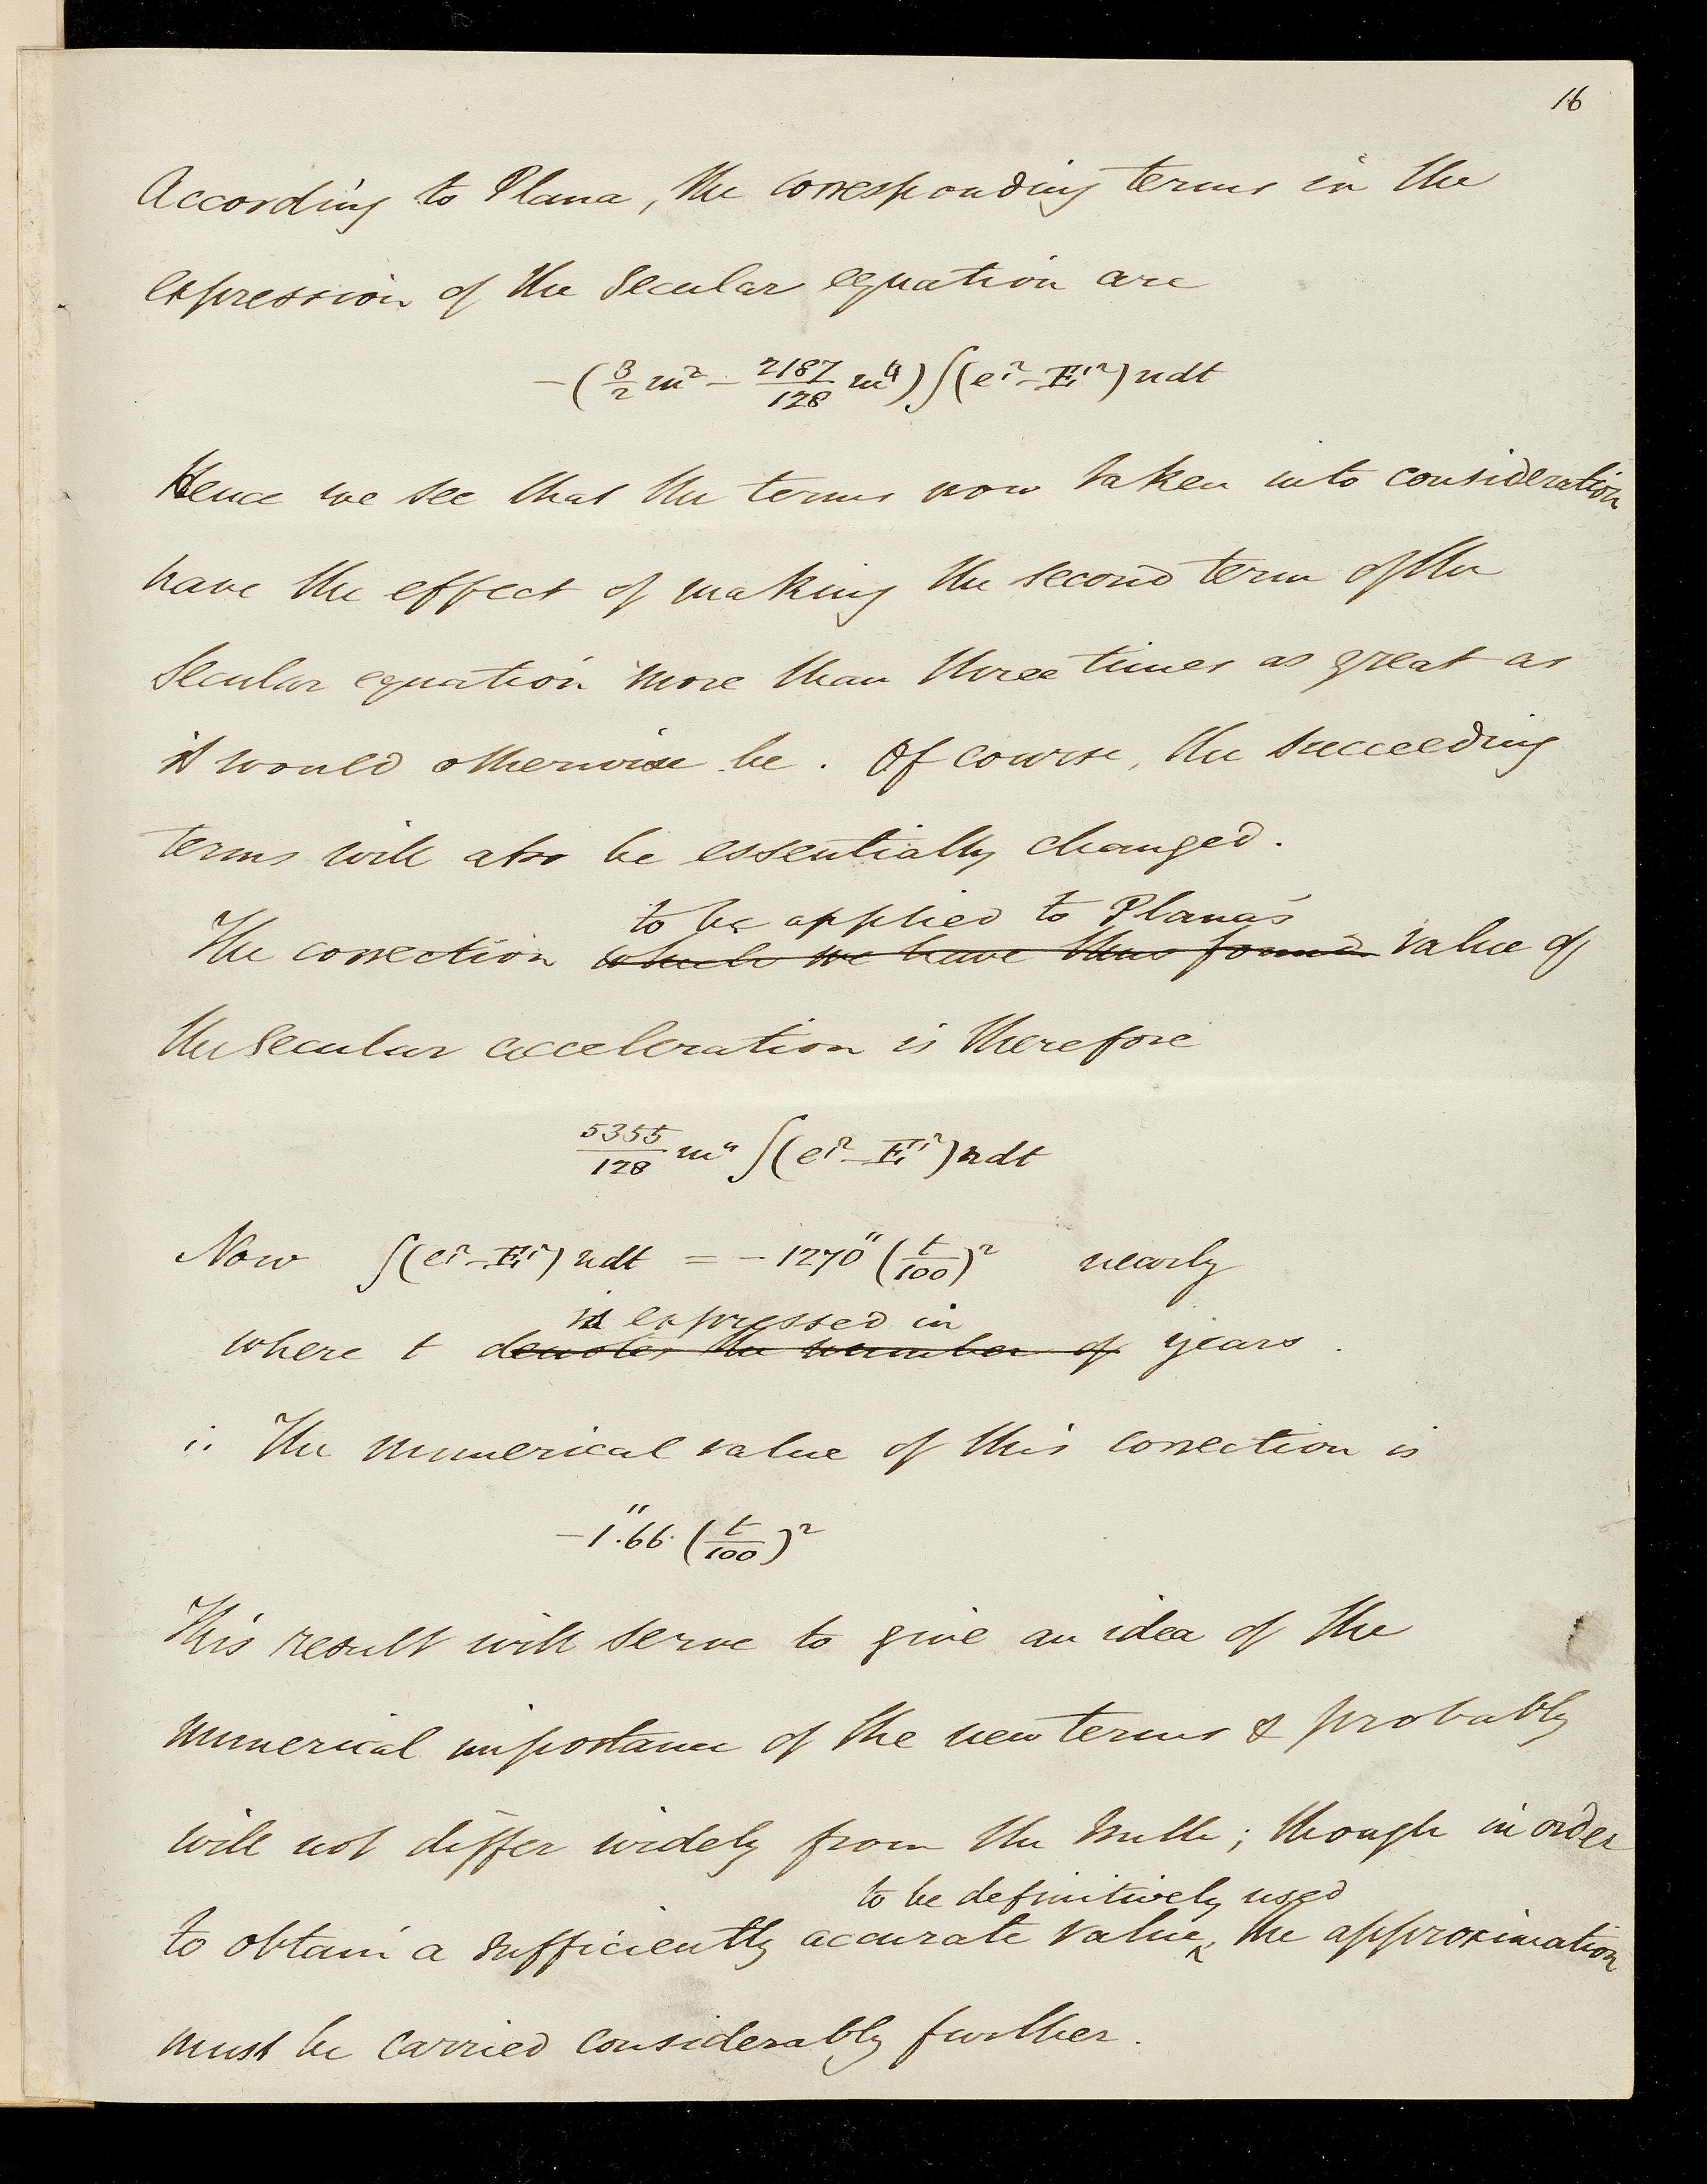 16
According to Plana, the corresponding terms in the
expression of the secular equation are
−(3/2 m² − 2187/128 m⁴) ∫(e'² − E'²) ndt
Hence we see that the terms now taken into consideration
have the effect of making the second term of the
secular equation more than three times as great as
it would otherwise be. Of course, the succeeding
terms will also be essentially changed.
to be applied to Plana's
The correction which we have thus found value of
the secular acceleration is therefore
5355/128 m⁴ ∫(e'² − E'²) ndt
Now ∫(e'² − E'²) ndt = −1270" (t/100)² nearly
is expressed in
where t denotes the number of years.
∴ The numerical value of this correction is
−1".66 (t/100)²
This result will serve to give an idea of the
numerical importance of the new terms & probably
will not differ widely from the truth; though in order
to be definitively used
to obtain a sufficiently accurate value, the approximation
must be carried considerably further.